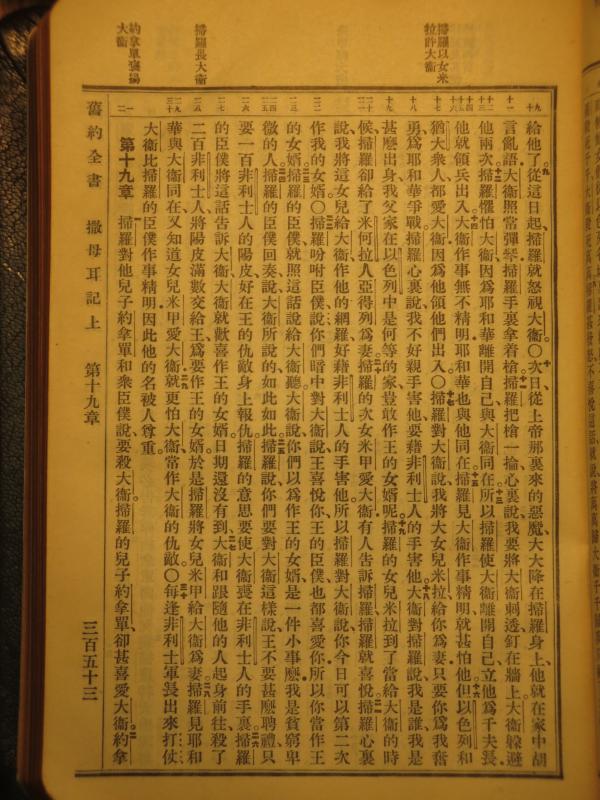 掃羅以女米拉許大衛
掃羅畏大衛
約拿單褒揚大衛
給他了、從這日起掃羅就怒視大衛。○次日從上帝那裏來的惡魔大大降在掃羅身上、他就在家中胡
言亂語、大衛照常彈琴、掃羅手裏拿着槍、掃羅把槍一掄、心裏說、我要將大衛刺透釘在牆上、大衛躲避
他兩次。掃羅懼怕大衛、因爲耶和華離開自己與大衛同在。所以掃羅使大衛離開自己、立他爲千夫長、
他就領兵出入。大衛作事無不精明、耶和華也與他同在。掃羅見大衛作事精明、就甚怕他。但以色列和
猶大衆人都愛大衛、因爲他領他們出入。○掃羅對大衛說、我將大女兒米拉給你爲妻、只要你爲我奮
勇爲耶和華爭戰、掃羅心裏說、我不好親手害他、要藉非利士人的手害他。大衛對掃羅說、我是誰、我是
甚麼出身、我父家在以色列中是何等的家、豈敢作王的女婿呢。掃羅的女兒米拉到了當給大衛的時
候、掃羅卻給了米何拉人亞得列爲妻。掃羅的次女米甲愛大衛、有人告訴掃羅、掃羅就喜悅。掃羅心裏
說、我將這女兒給大衛作他的網羅、好藉非利士人的手害他、所以掃羅對大衛說、你今日可以第二次
作我的女婿。○掃羅吩咐臣僕說、你們暗中對大衛說、王喜悅你、王的臣僕也都喜愛你、所以你當作王
的女婿。掃羅的臣僕就照這話說給大衛聽、大衛說、你們以爲作王的女婿是一件小事麼、我是貧窮卑
微的人。掃羅的臣僕回奏說、大衛所說的如此如此。掃羅說、你們要對大衛這樣說、王不要甚麼聘禮、只
要一百非利士人的陽皮、好在王的仇敵身上報仇、掃羅的意思要使大衛喪在非利士人的手裏。掃羅
的臣僕將這話告訴大衛、大衛就歡喜作王的女婿、日期還沒有到、大衛和跟隨他的人起身前往、殺了
二百非利士人、將陽皮滿數交給王、爲要作王的女婿、於是掃羅將女兒米甲給大衛爲妻。掃羅見耶和
華與大衛同在、又知道女兒米甲愛大衛。就更怕大衛、常作大衛的仇敵。○每逢非利士軍長出來打仗、
大衛比掃羅的臣僕作事精明、因此他的名被人尊重。
第十九章　掃羅對他兒子約拿單和衆臣僕說、要殺大衛、掃羅的兒子約拿單、卻甚喜愛大衛。約拿
舊約全書　撒母耳記上　第十九章　三百五十三